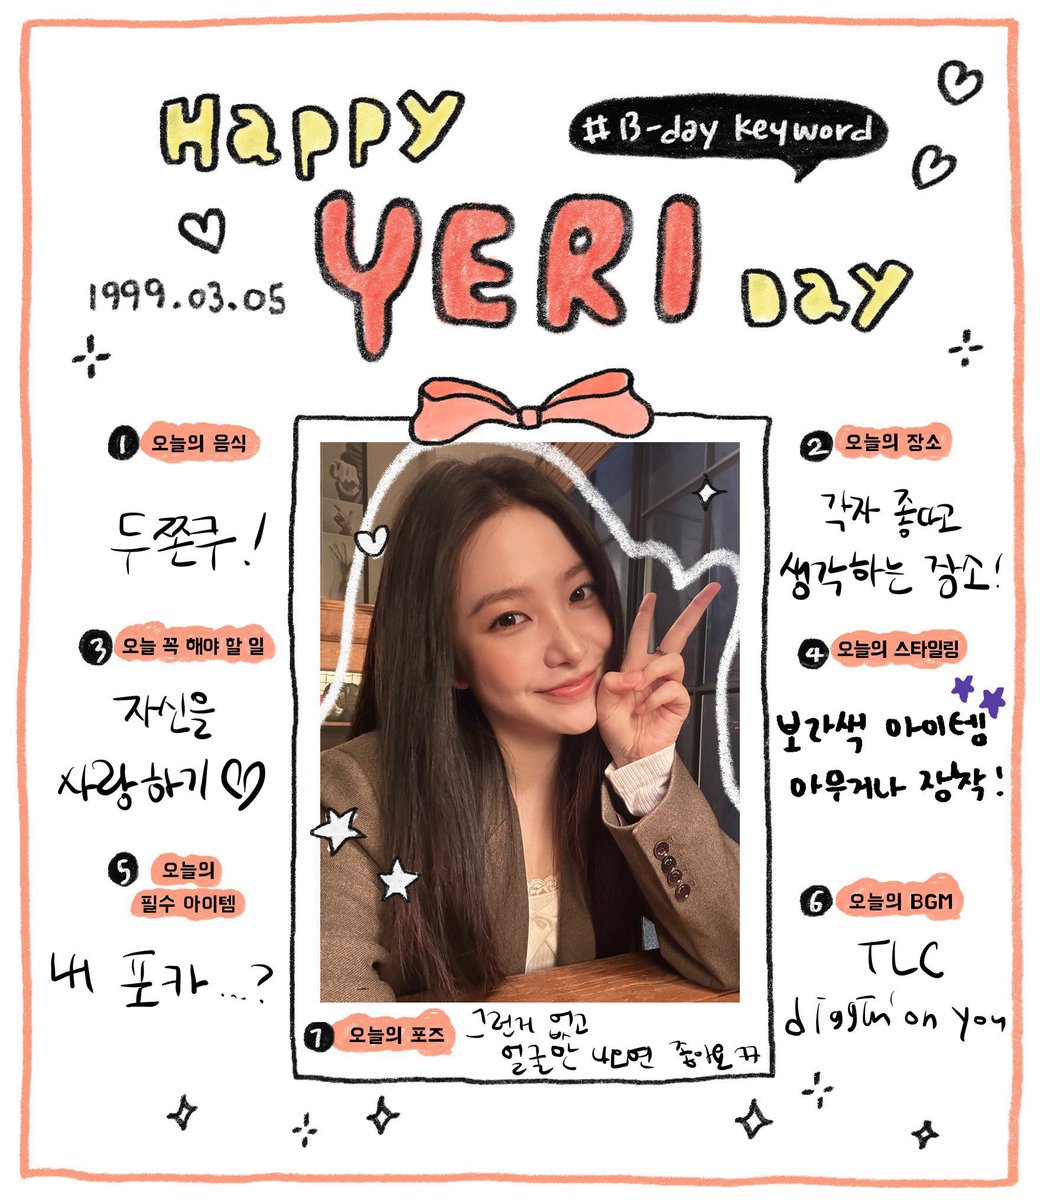 Happy
#B-day keyword
YERI
1999.03.05
Day
1 오늘의 음식
두쫀쿠!
2 오늘의 장소
각자 좋다고
생각하는 장소!
3 오늘 꼭 해야 할 일
자신을
사랑하기♡
4 오늘의 스타일링
보라색 아이템
아무거나 장착!
5 오늘의
필수 아이템
내 포카...?
6 오늘의 BGM
TLC
diggin' on you
7 오늘의 포즈
그런거 없고
얼굴만 나오면 좋아요ㅠ